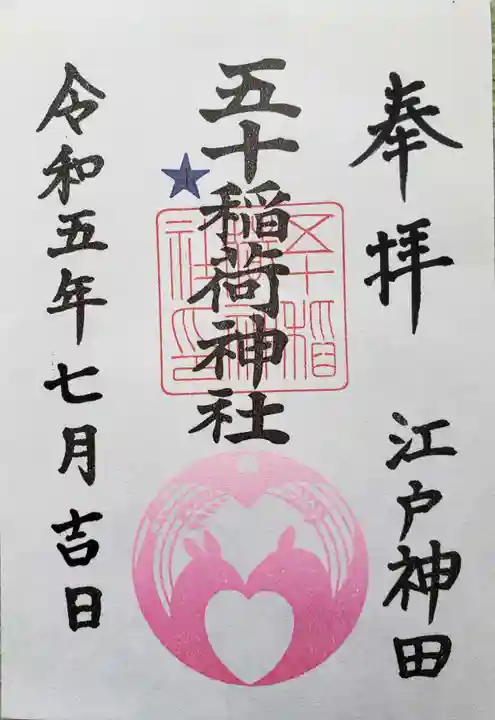 奉拝
江戸神田
五十稲荷神社
五十稲荷神社印
令和五年七月吉日